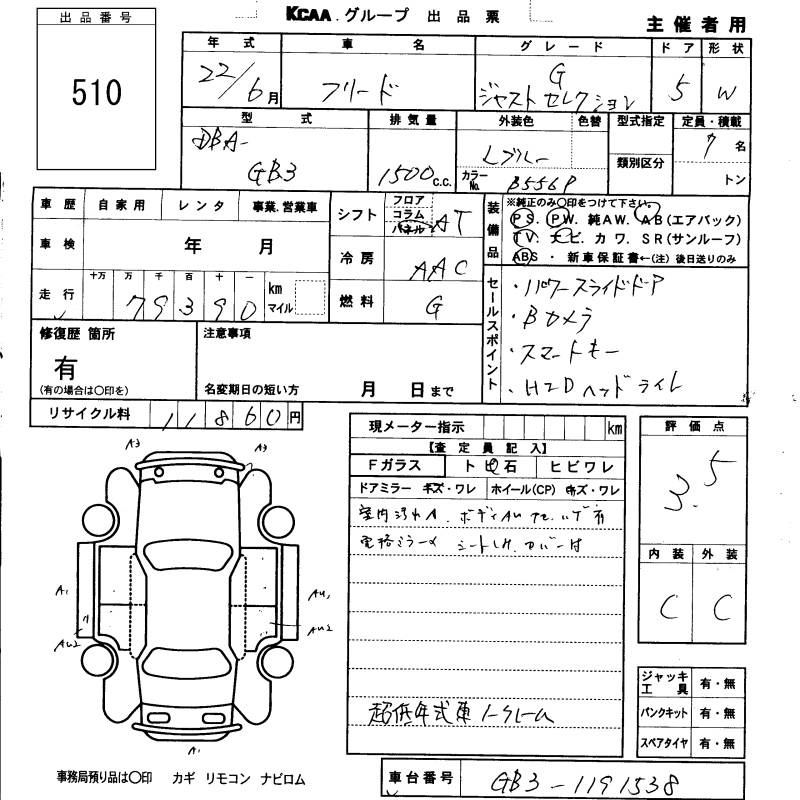 KCAA.グループ 出品票
主催者用
出品番号
510
年式 車名 グレード ドア 形状
22/6月 フリード G ジャストセレクション 5 W
型式 排気量 外装色 色替 型式指定 定員・積載
類別区分
DBA-GB3 1500c.c. Lブルー カラーNo. B556P 7名
トン
車歴 自家用 レンタ 事業.営業車
シフト フロア コラム パネル AT
車検 年 月
冷房 AAC
走行 十万 万 千 百 十 一 km マイル
79390
燃料 G
装備品
※純正のみ○印をつけて下さい。
PS. PW. 純AW. AB(エアバック)
TV. ナビ. カワ. SR(サンルーフ)
ABS ・ 新車保証書←(注) 後日送りのみ
セールスポイント
・パワースライドドア
・Bカメラ
・スマートキー
・HIDヘッドライト
修復歴 箇所
有
(有の場合は○印を)
注意事項
名変期日の短い方 月 日まで
リサイクル料 11860円
現メーター指示 km
【査定員記入】
Fガラス トビ石 ヒビワレ
ドアミラー キズ・ワレ ホイール(CP) キズ・ワレ
室内汚れA. ボディAU
電格ミラー シート カバー付
超低年式車ノークレーム
評価点
3.5
内装 外装
C C
ジャッキ工具 有・無
パンクキット 有・無
スペアタイヤ 有・無
A3 A3
A1 AU1
AU2 AU2
A1
事務局預り品は○印 カギ リモコン ナビロム
車台番号 GB3-1191538